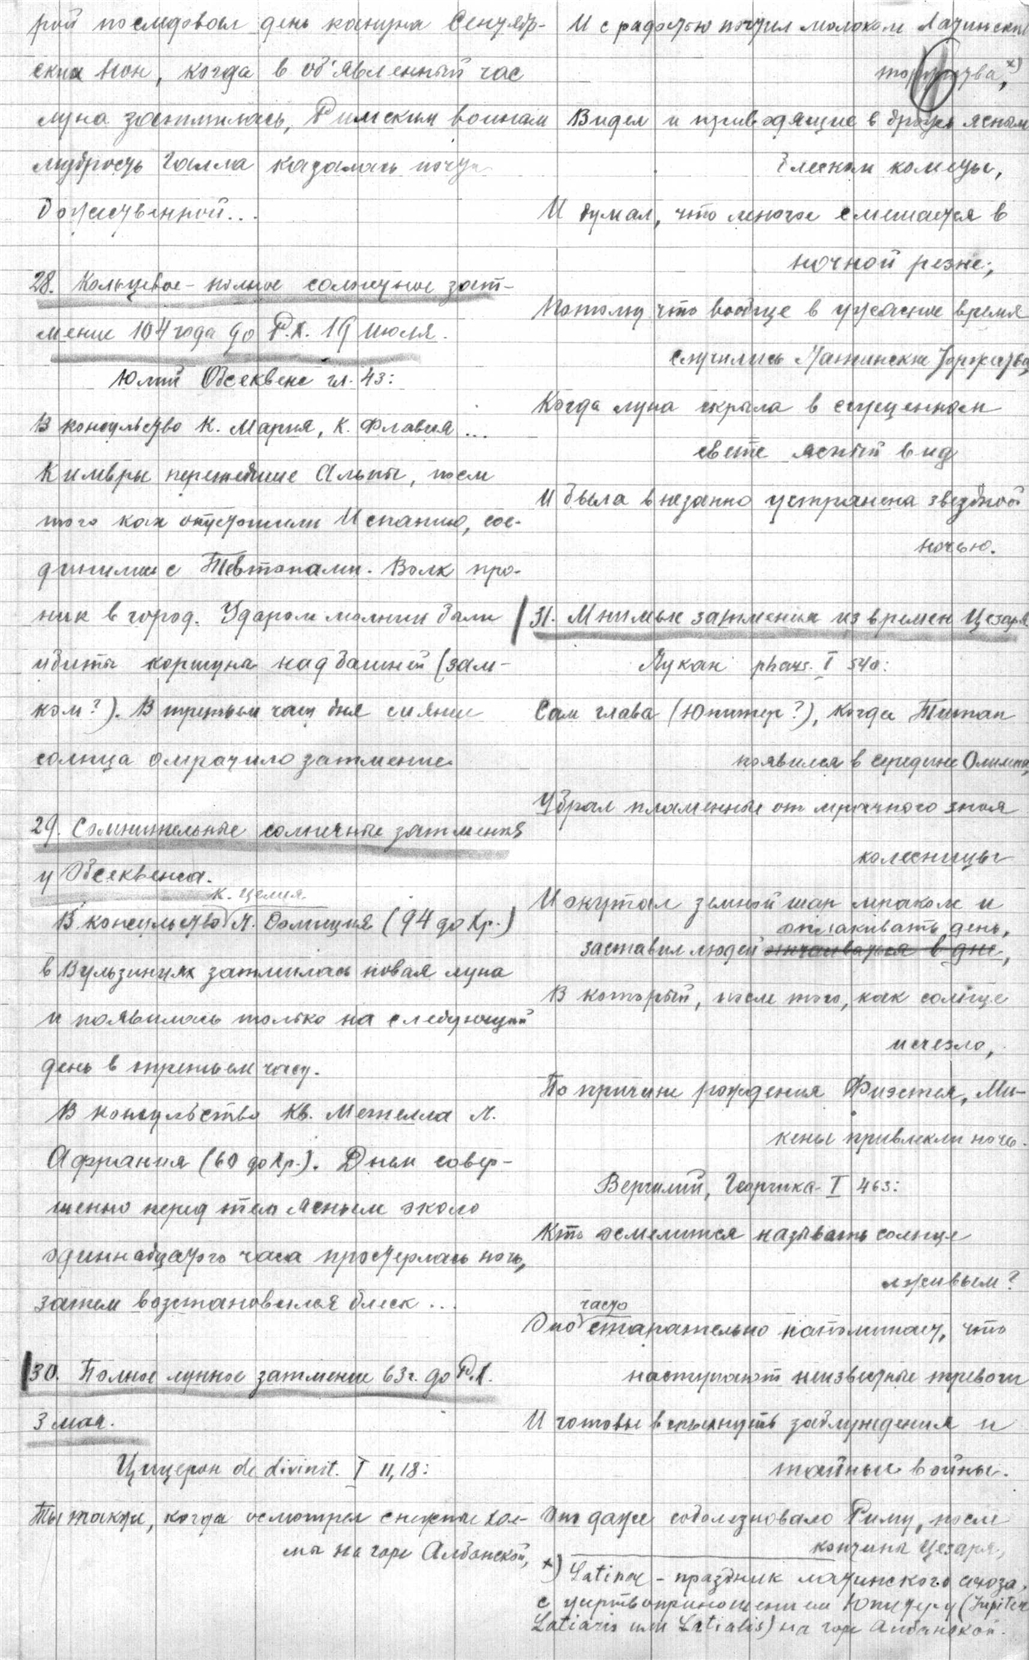 рой последовал день кануна Сентябр-
ских Нон, когда в об'явленный час
луна затмилась, Римским воинам
мудрость Галла казалась почти
божественной...
28. Кольцевое-полное солнечное зат-
мение 104 года до Р.Х. 19 июля.
Юлий Обсеквенс гл. 43:
В консульство К. Мария, К. Флавия ...
Кимвры перешедшие Альпы, после
того как опустошили Испанию, сое-
динились с Тевтонами. Волк про-
ник в город. Ударом молнии были
убиты коршуны над башней (зам-
ком?). В третьем часу дня сияние
солнца омрачило затмение.
29. Сомнительные солнечные затмения
у Обсеквенса.
К. Целия
В консульство Л. Домиция (94 до Хр.)
в Вульзиниях затмилась новая луна
и появилась только на следующий
день в третьем часу.
В консульство Кв. Метелла Л.
Афрания (60 до Хр.). Днем совер-
шенно перед тем ясным около
одиннадцатого часа простерлась ночь,
затем возстановился блеск ...
30. Полное лунное затмение 63 г. до Р.Х.
3 мая.
Цицерон de divinit. I 11, 18:
Ты также, когда осмотрел снежные хол-
мы на горе Албанской,
И с радостью почтил молоком Латинские
торжества, x)
Видел и приводящие в дрожь ясным
блеском кометы,
И думал, что многое смешается в
ночной резне;
Потому что вообще в ужасное время
случились Латинские Торжества,
Когда луна скрыла в сгущенном
свете ясный вид
И была внезапно устранена звездной
ночью.
31. Мнимые затмения из времен Цезаря
Лукан phars. I 540:
Сам глава (Юпитер?), когда Титан
появился в середине Олимпа,
Убрал пламенные от мрачного зноя
колесницы
И окутал земной шар мраком и
оплакивать день,
заставил людей
В который, после того, как солнце
исчезло,
По причине рождения Фиэстея, Ми-
кены привлекли ночь.
Вергилий, Георгика I 463:
Кто осмелится называть солнце
лживым?
часто
Оно старательно напоминает, что
наступают неизвестные тревоги
И готовы вспыхнуть заблуждения и
тайные войны.
Оно даже соболезновало Риму, после
кончины Цезаря,
x) Latinae - праздник латинского союза,
с жертвоприношением Юпитеру (Jupiter
Latiaris или Latialis) на горе Албанской.